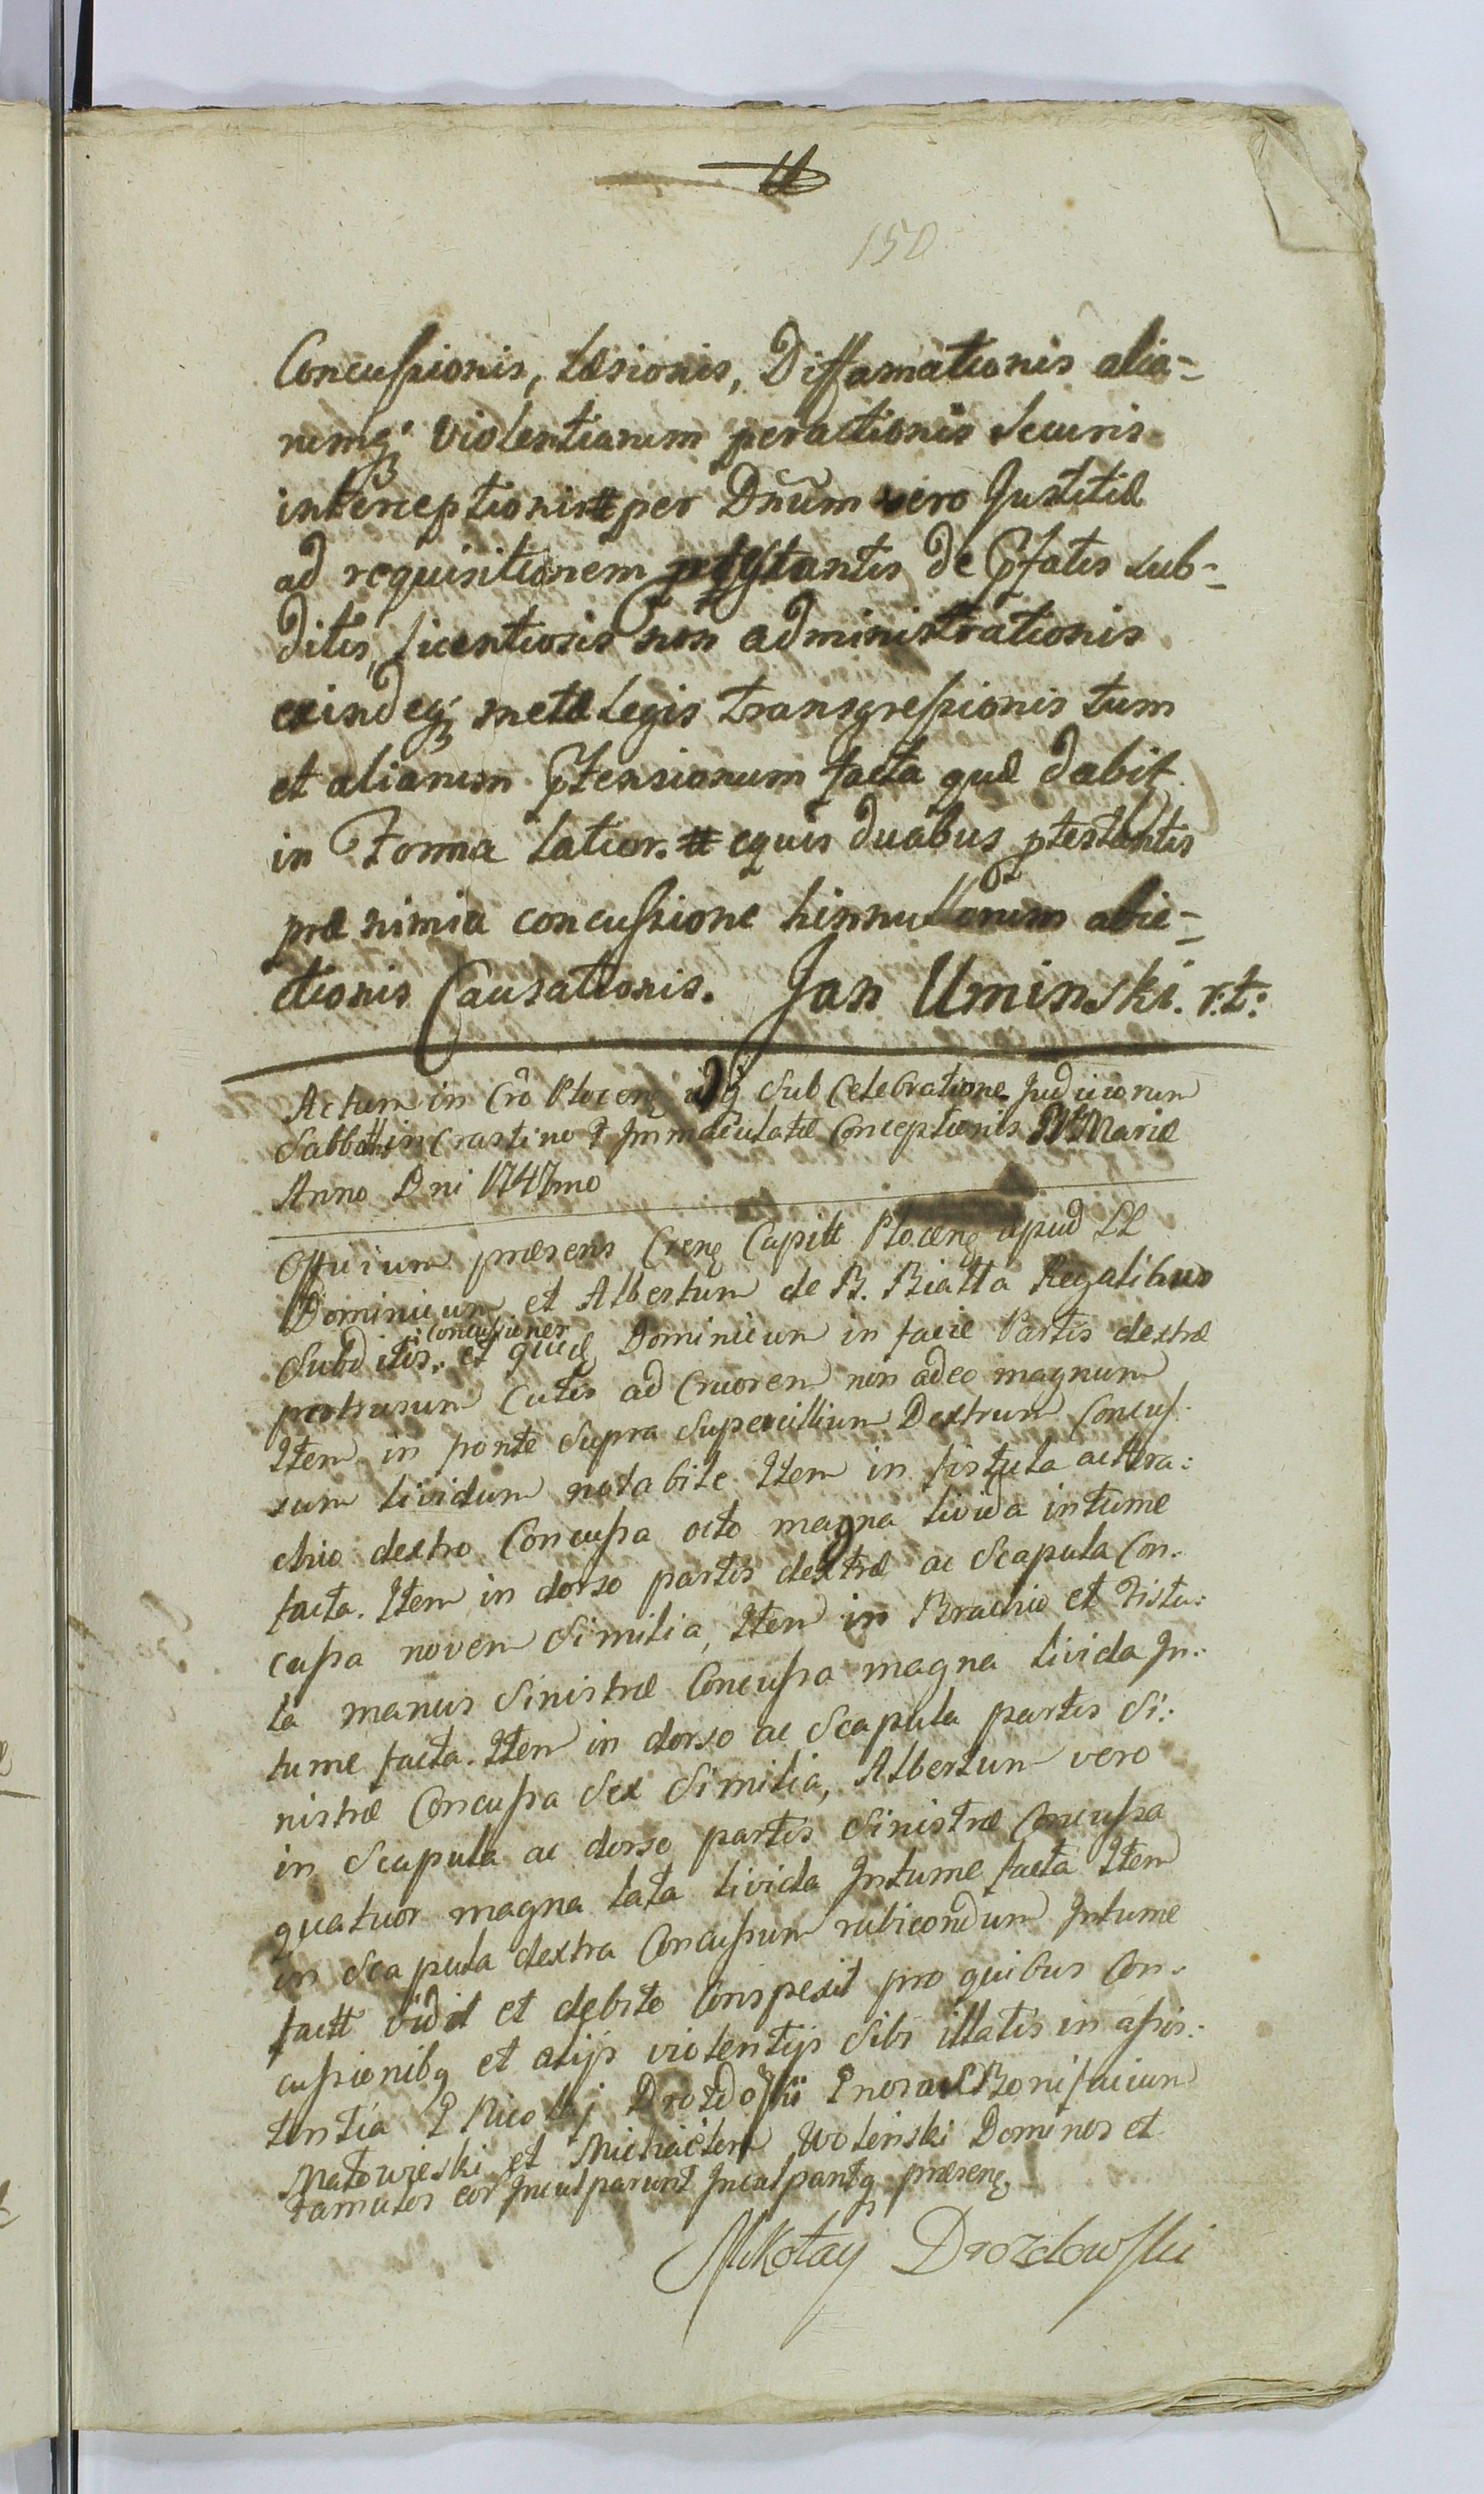 150
Concussionis, Læsionis, Diffamationis alia-
rumq; violentiarum peractionis Securis
interceptionis per Dnum vero Justitiæ
ad requisitionem de Pfatis sub-
ditis, licentiosis non administrationis
exindeq; metæ legis transgressionis tum
et aliarum Ptensionum facta quæ dabit
in Forma latior. equis duabus ptestantis
præ nimia concussione hinnullorum abie-
ctionis Causationis. Jan Uminski. r.t:
Actum in Cro Plocen Sub Celebratione Judiciorum
Sabbatho in Crastino Immaculatæ Conceptionis Mariæ
Anno Dni 1747mo
Officium præsens Crens Capitt Plocens apud LL
Dominicum et Albertum de B. Bialta Regalibus
concussiones
Subditis. et quid Dominicum in facie Partis dextræ
pertrusum Cutis ad Cruorem non adeo magnum
Item in fronte supra Supercillium Dextrum Concus-
sum lividum notabile Item in fistula ac bra:
chio dextro Concussa octo magna livida intume
facta. Item in dorso partis dextræ ac Scapula Con-
cussa novem Similia, Item in Brachio et Fistu:
la manus Sinistræ Concussa magna livida In:
tume facta. Item in dorso ac Scapula partis Si:
nistræ Concussa Sex Similia, Albertum vero
in Scapula ac dorso partis Sinistræ Concussa
quatuor magna lata livida Intume facta Item
in Scapula dextra Concussum rubicondum Intume
factt vidit et debite Conspexit pro quibus Con-
cussionibq et alijs violentijs Sibi illatis in assis:
tentia P Nicolaj Drozdoskii Bonifacium
Małowieski et Michaelem Wolinski Dominos et
Famulos eor Inculparunt Inculpantq præsens
Mikołay Drozdowski